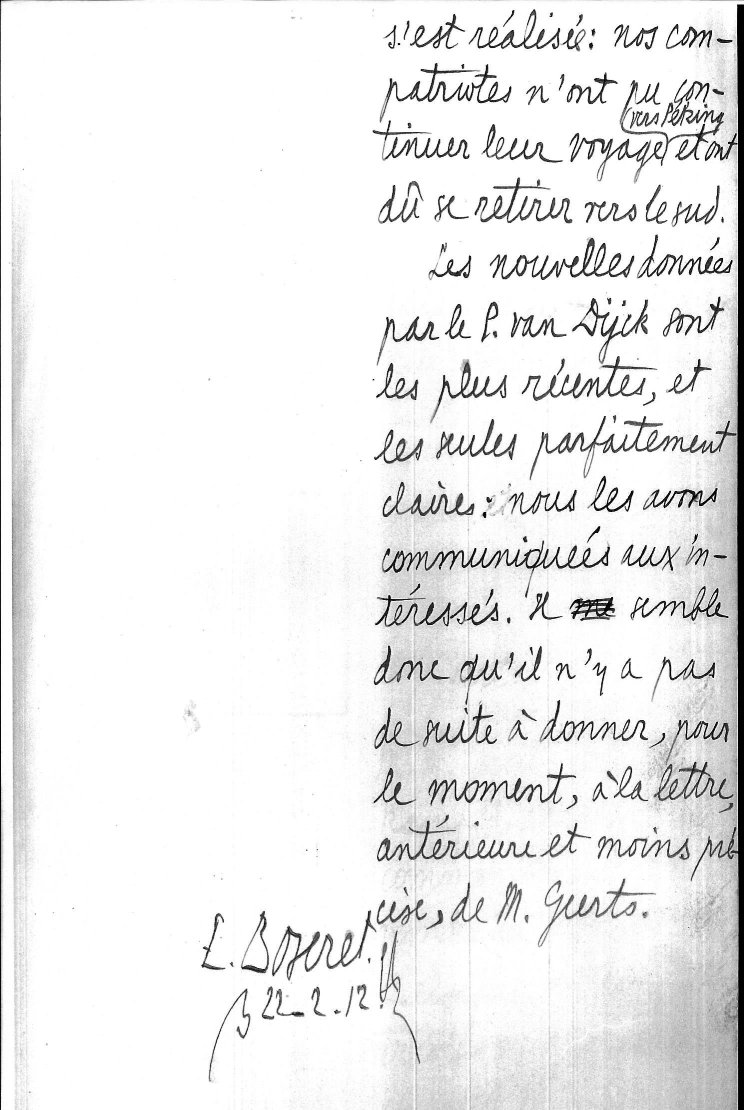 s'est réalisée: nos com-
patriotes n'ont pu con-
vers Péking
tinuer leur voyage et ont
dû se retirer vers le sud.
Les nouvelles données
par le P. van Dijck sont
les plus récentes, et
les seules parfaitement
claires: nous les avons
communiqueés aux in-
téressés. Il semble
donc qu'il n'y a pas
de suite à donner, pour
le moment, à la lettre,
antérieure et moins pré-
cise, de M. Geerts.
E.
22-2-12